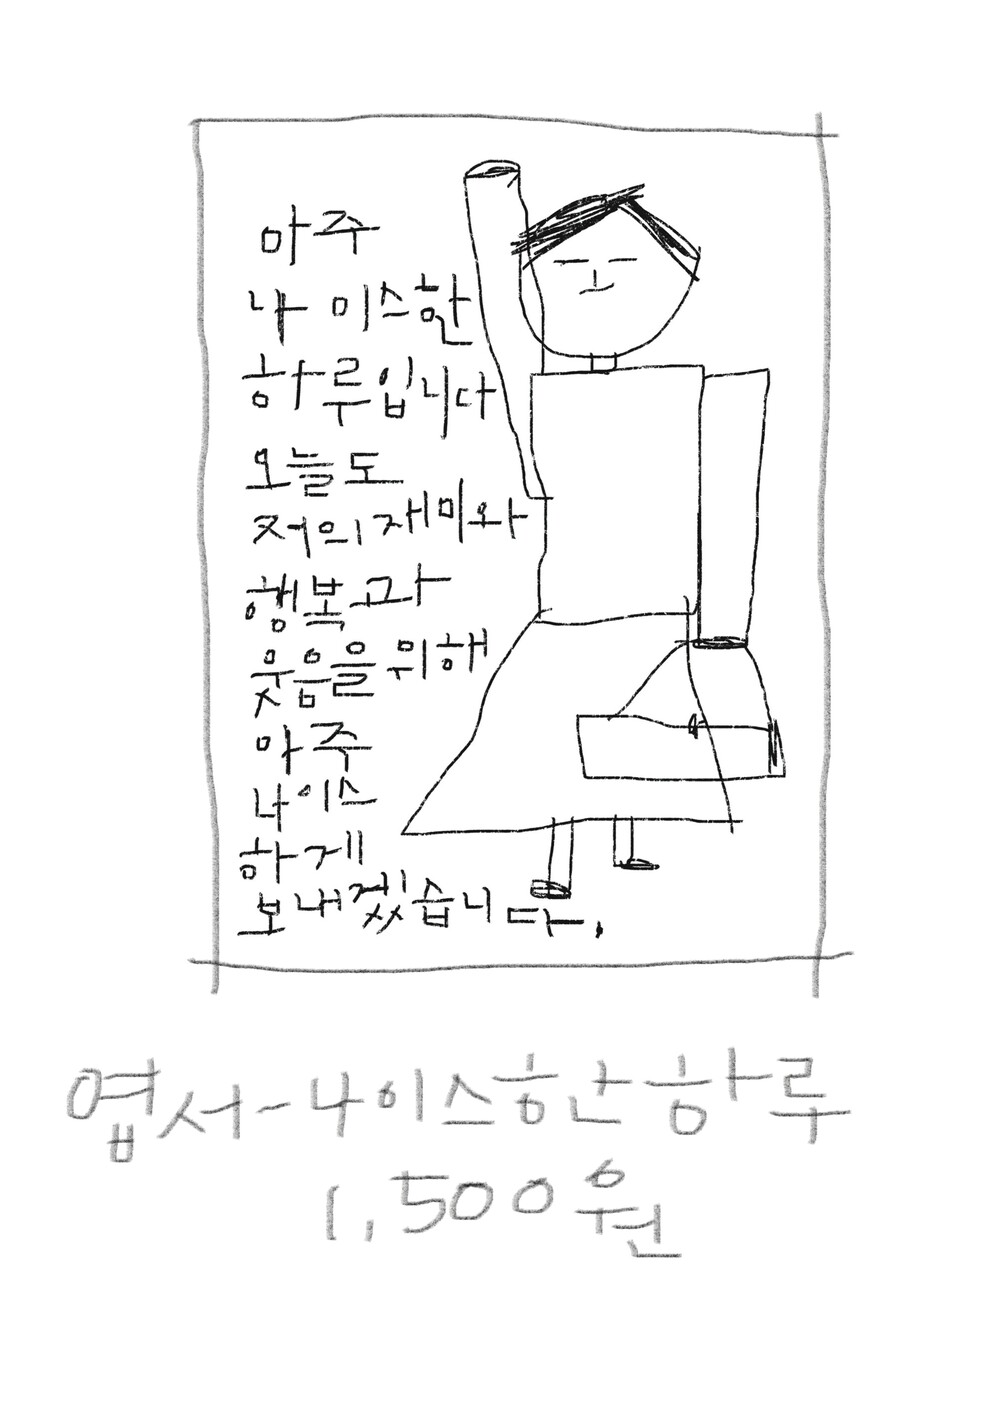 아주
나이스한
하루입니다
오늘도
저의 재미와
행복과
웃음을 위해
아주
나이스
하게
보내겠습니다.
엽서-나이스한 하루
1,500원